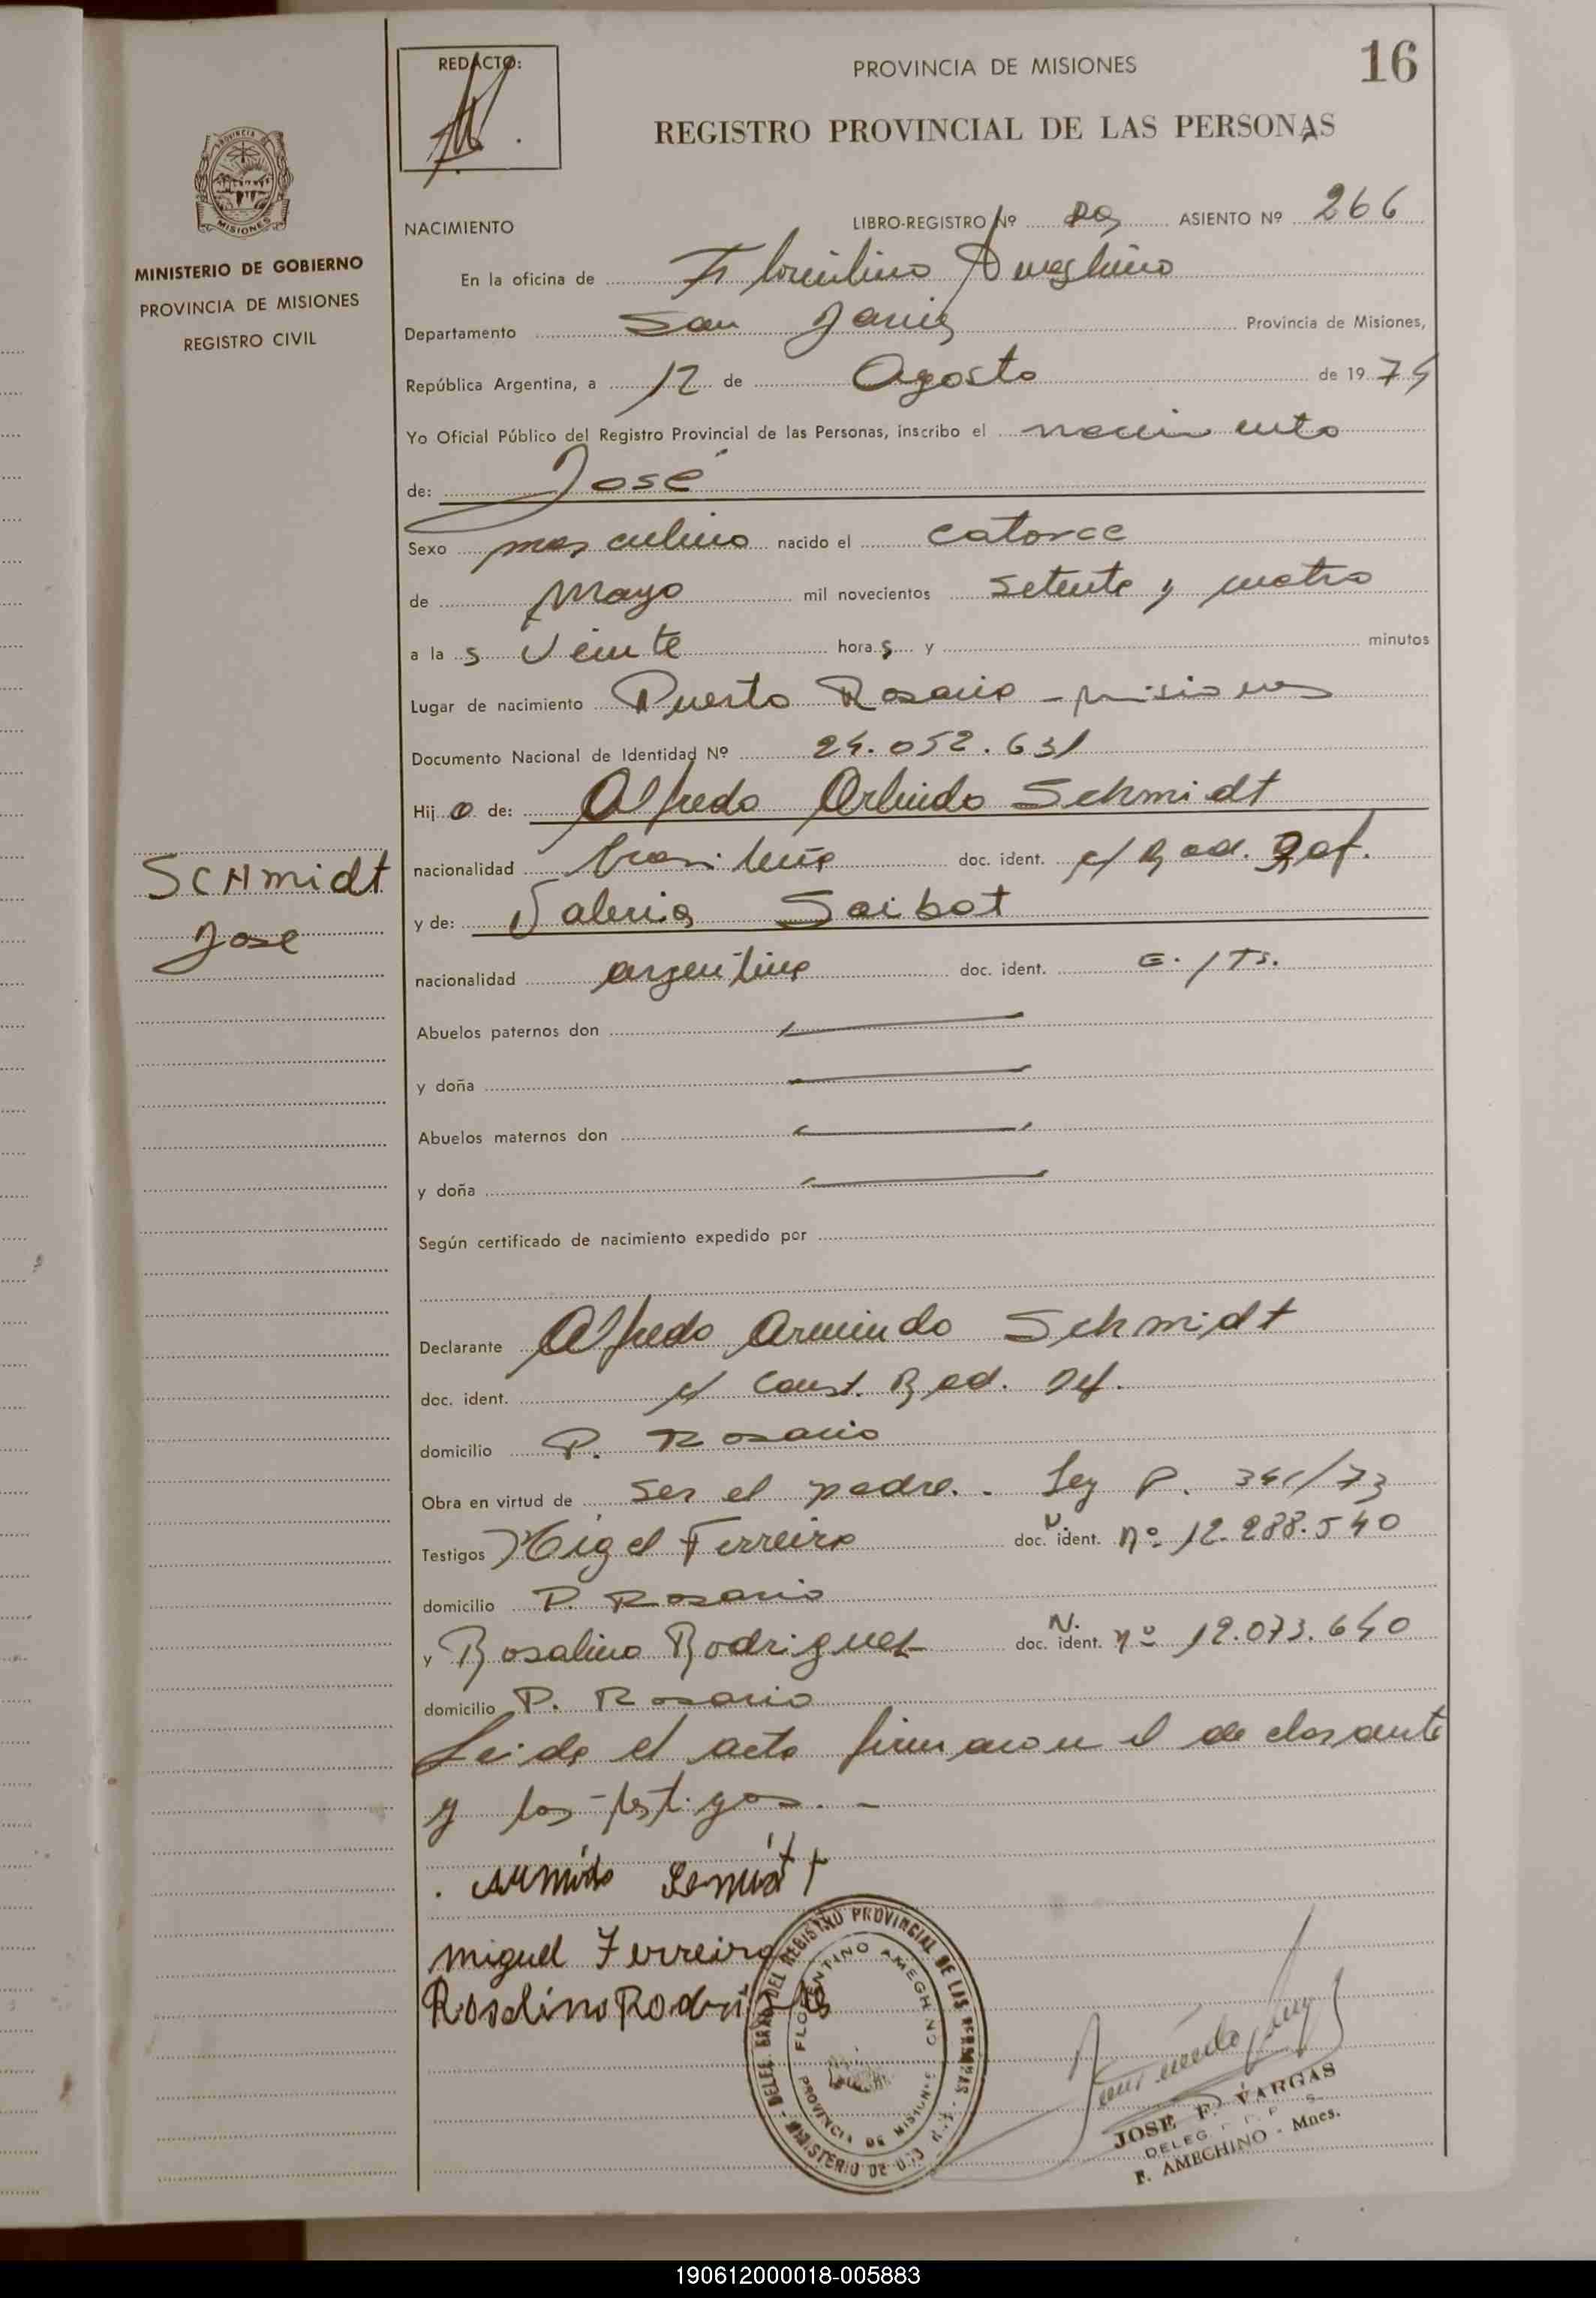 REDACTO:
PROVINCIA DE MISIONES
16
REGISTRO PROVINCIAL DE LAS PERSONAS
PROVINCIA
MISIONES
MINISTERIO DE GOBIERNO
PROVINCIA DE MISIONES
REGISTRO CIVIL
NACIMIENTO LIBRO-REGISTRO Nº ASIENTO Nº 266
En la oficina de Florentino Ameghino
Departamento San Javier Provincia de Misiones,
República Argentina, a 12 de Agosto de 1974
Yo Oficial Público del Registro Provincial de las Personas, inscribo el nacimiento
de: José
Sexo masculino nacido el catorce
de Mayo mil novecientos setenta y cuatro
a las veinte horas y minutos
Lugar de nacimiento Puerto Rosario - misiones
Documento Nacional de Identidad Nº 24.052.631
Hijo de: Alfredo Orlindo Schmidt
nacionalidad brasileña doc. ident. c/ Rad. Def.
y de: Valeria Saibot
nacionalidad argentina doc. ident.
SCHmidt
Jose
Abuelos paternos don
y doña
Abuelos maternos don
y doña
Según certificado de nacimiento expedido por
Declarante Alfredo Armindo Schmidt
doc. ident. c/ Const. Rad. Def.
domicilio P. Rosario
Obra en virtud de ser el padre. - Ley P. 341/73
Testigos Migel Ferreira doc. N. ident. nº 12.288.540
domicilio P. Rosario
y Rosalino Rodriguez doc. N. ident. nº 12.073.640
domicilio P. Rosario
Leida el acta firmaron el declarante
y los testigos. -
miguel Ferreira
Roselino
DELEG. DEL REGISTRO PROVINCIAL DE LAS PERSONAS
FLORENTINO AMEGHINO
PROVINCIA DE MISIONES
MINISTERIO DE GOB.
JOSE F. VARGAS
DELEG.
F. AMEGHINO - Mnes.
190612000018-005883